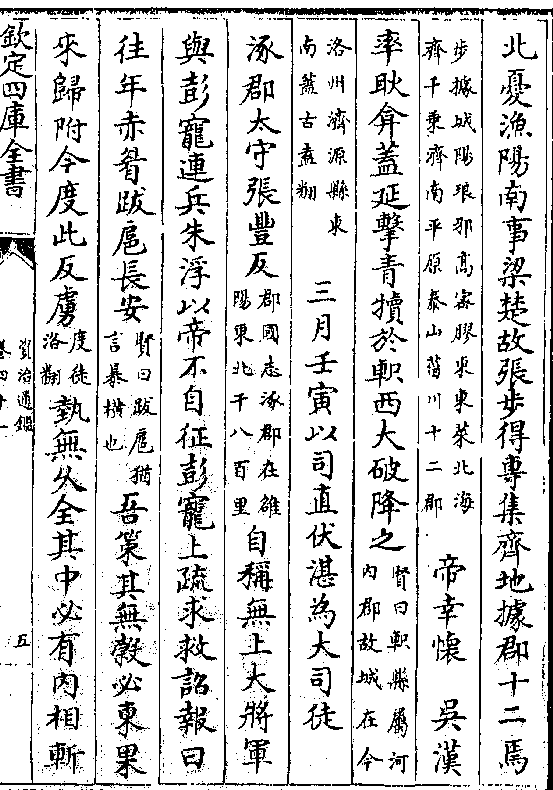 北憂漁陽南事梁楚故張步得專集齊地據郡十二焉
步據城陽琅邪高密膠東東萊北海
齊千乗齊南平原泰山菑川十二郡
帝幸懐　吳漢
率耿弇蓋延擊青犢於軹西大破降之
賢曰軹縣屬河
内郡故城在今
洛州濟源縣東
南蓋古素翻
三月壬寅以司直伏湛為大司徒
涿郡太守張豐反
郡國志涿郡在雒
陽東北千八百里
自稱無上大將軍
與彭寵連兵朱浮以帝不自征彭寵上疏求救詔報曰
往年赤眉跋扈長安
賢曰跋扈猶
言暴横也
吾策其無穀必東果
來歸附今度此反虜
度徒
洛翻
埶無久全其中必有内相斬
欽定四庫全書
資治通鑑
卷四十一
五